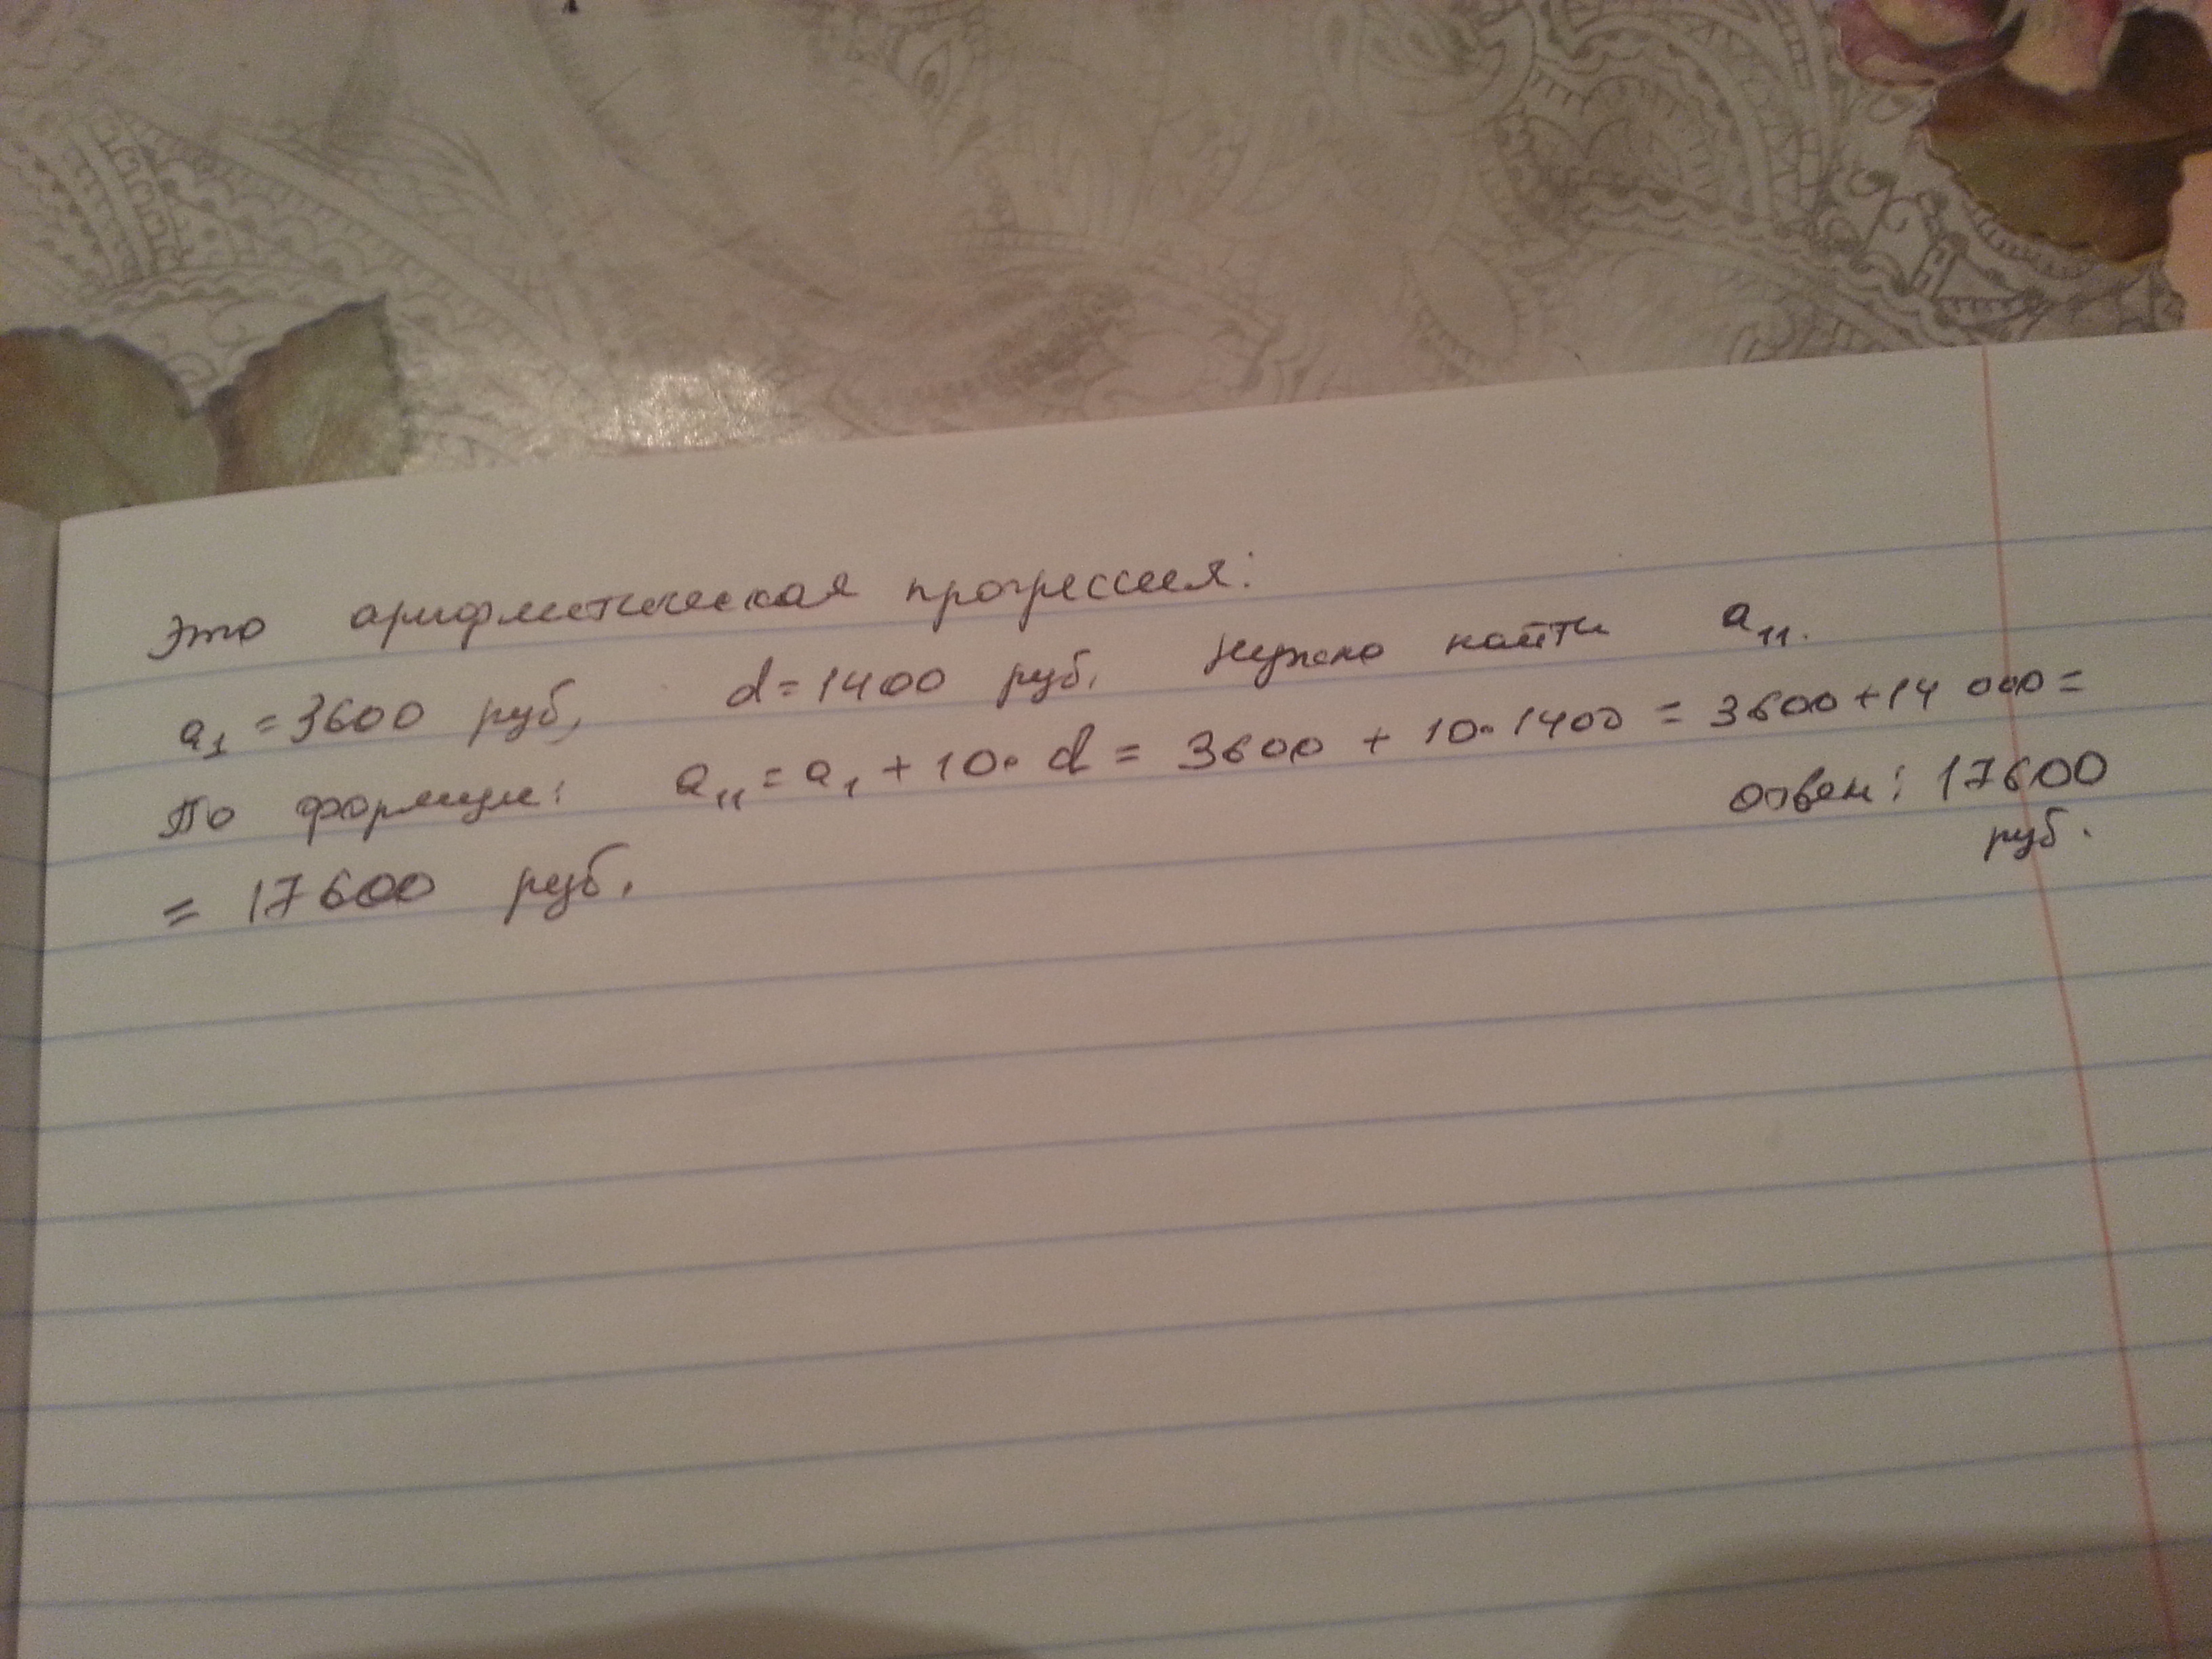 Это арифметическая прогрессия:
a₁ = 3600 руб, d = 1400 руб. Нужно найти a₁₁.
По формуле: a₁₁ = a₁ + 10· d = 3600 + 10·1400 = 3600 + 14 000 =
= 17600 руб. Ответ: 17600
руб.